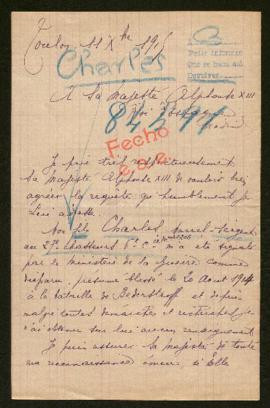 Toulon 11 Xbre 1915
Charles
A Sa Majesté Alphonse XIII
Roi d'Espagne
Madrid
84291
Fecho
Je prie très respectueusement
Sa Majesté Alphonse XIII de vouloir bien
agréer la requête que humblement je
lui adresse.
Mon fils Charles, Sergent
au 27e Chasseurs m'a été signalé
par le Ministère de la Guerre comme
disparu, présumé blessé le 20 Août 1914
à la bataille de et depuis
malgré toutes démarches et recherches je
n'ai obtenu sur lui aucun renseignement.
Je puis assurer Sa Majesté de toute
ma reconnaissance émue, si Elle